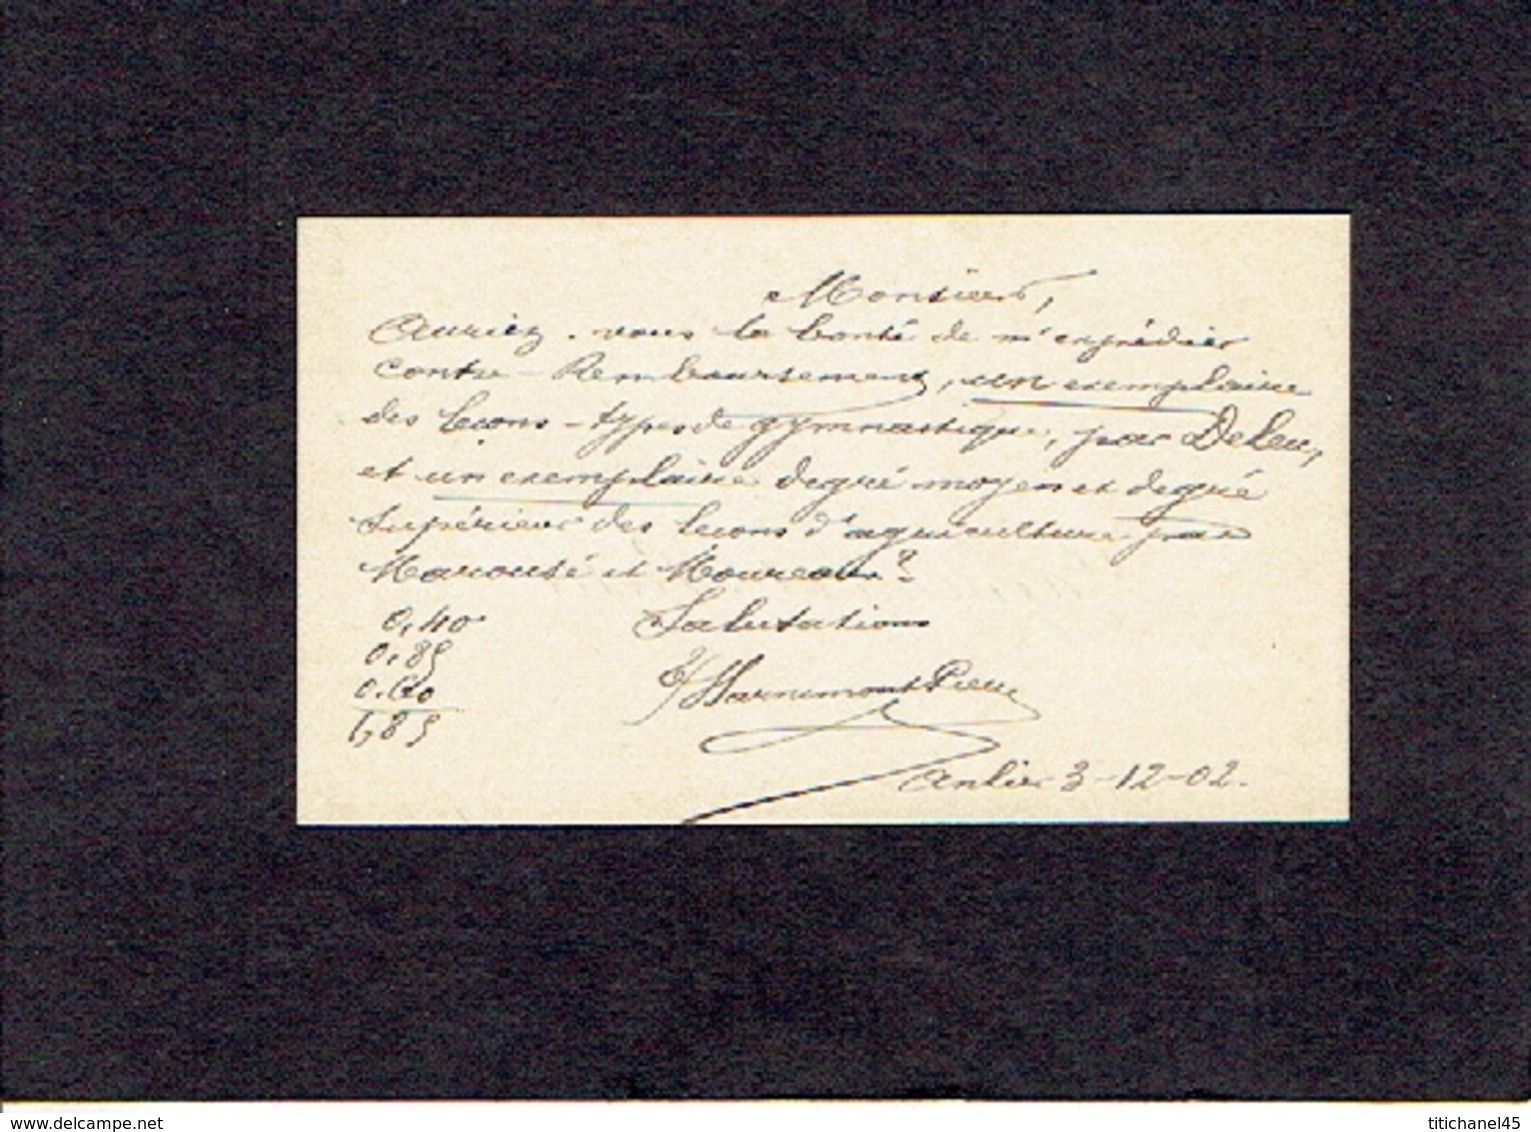 Monsieur,
Auriez-vous la bonté de m'expédier
contre-Remboursement, un exemplaire
des leçons-types de gymnastique, par Deleu,
et un exemplaire degré moyen et degré
supérieur des leçons d'agriculture par
Marousé et Moureaux?
0,40
0,85
0.60
1,85
Salutations
Harnimont
Anlier 3-12-02.
www.delcampe.net
titichanel45